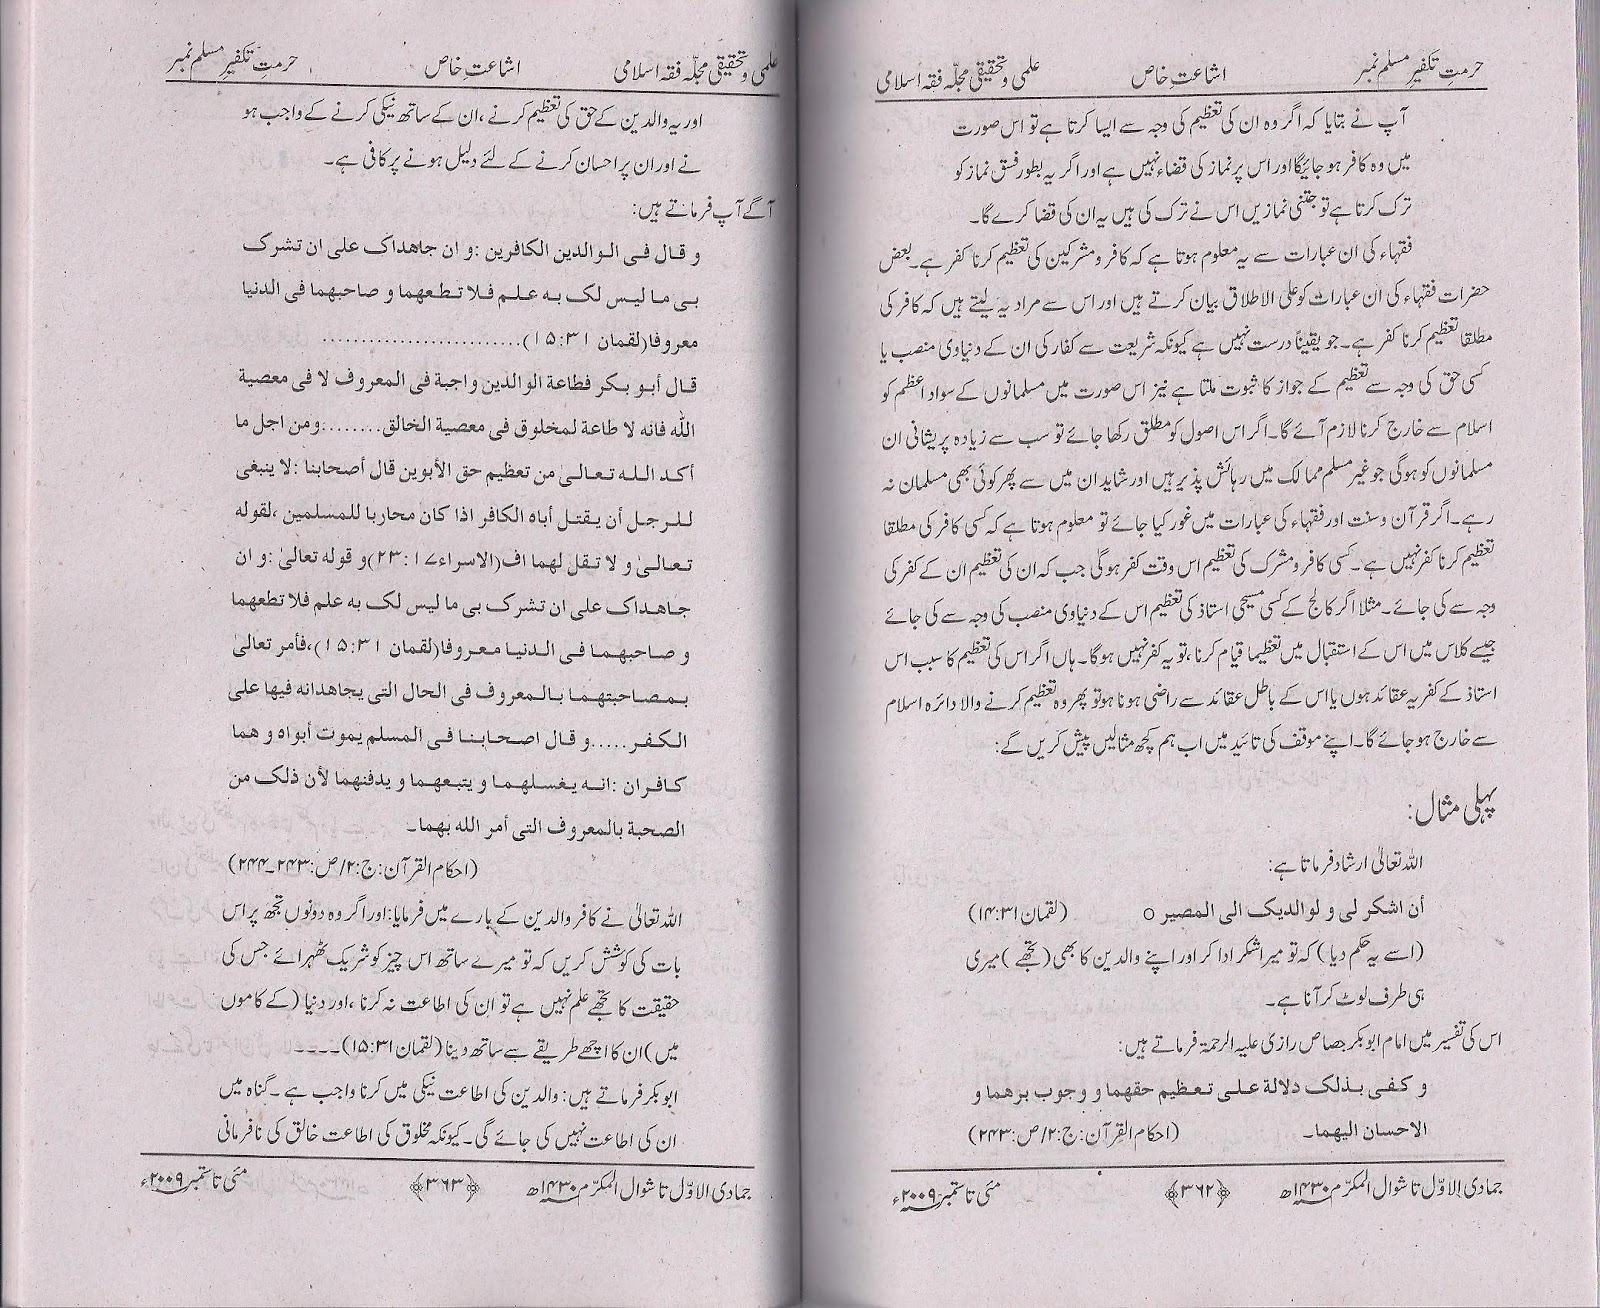 حرمتِ تکفیرِ مسلم نمبر اشاعتِ خاص علمی و تحقیقی مجلّہ فقہ اسلامی
آپ نے بتایا کہ اگر وہ ان کی تعظیم کی وجہ سے ایسا کرتا ہے تو اس صورت
میں وہ کافر ہو جائیگا اور اس پر نماز کی قضاء نہیں ہے اور اگر یہ بطور فسق نماز کو
ترک کرتا ہے تو جتنی نمازیں اس نے ترک کی ہیں یہ ان کی قضا کرے گا۔
فقہاء کی ان عبارات سے یہ معلوم ہوتا ہے کہ کافر و مشرکین کی تعظیم کرنا کفر ہے۔ بعض
حضرات فقہاء کی ان عبارات کو علی الاطلاق بیان کرتے ہیں اور اس سے مراد یہ لیتے ہیں کہ کافر کی
مطلقا تعظیم کرنا کفر ہے۔ جو یقیناً درست نہیں ہے کیونکہ شریعت سے کفار کی ان کے دنیاوی منصب یا
کسی حق کی وجہ سے تعظیم کے جواز کا ثبوت ملتا ہے نیز اس صورت میں مسلمانوں کے سواد اعظم کو
اسلام سے خارج کرنا لازم آئے گا۔ اگر اس اصول کو مطلق رکھا جائے تو سب سے زیادہ پریشانی ان
مسلمانوں کو ہوگی جو غیر مسلم ممالک میں رہائش پذیر ہیں اور شاید ان میں سے پھر کوئی بھی مسلمان نہ
رہے۔ اگر قرآن و سنت اور فقہاء کی عبارات میں غور کیا جائے تو معلوم ہوتا ہے کہ کسی کافر کی مطلقا
تعظیم کرنا کفر نہیں ہے۔ کسی کافر و مشرک کی تعظیم اس وقت کفر ہوگی جب کہ ان کی تعظیم ان کے کفر کی
وجہ سے کی جائے۔ مثلا اگر کالج کے کسی مسیحی استاذ کی تعظیم اس کے دنیاوی منصب کی وجہ سے کی جائے
جیسے کلاس میں اس کے استقبال میں تعظیما قیام کرنا، تو یہ کفر نہیں ہوگا۔ ہاں اگر اس کی تعظیم کا سبب اس
استاذ کے کفریہ عقائد ہوں یا اس کے باطل عقائد سے راضی ہونا ہو تو پھر وہ تعظیم کرنے والا دائرہ اسلام
سے خارج ہو جائے گا۔ اپنے موقف کی تائید میں اب ہم کچھ مثالیں پیش کریں گے:
پہلی مثال:
اللہ تعالیٰ ارشاد فرماتا ہے:
أن اشکر لی و لوالدیک الی المصیر o (لقمان ۱۴:۳۱)
(اسے یہ حکم دیا) کہ تو میرا شکر ادا کر اور اپنے والدین کا بھی (تجھے) میری
ہی طرف لوٹ کر آنا ہے۔
اس کی تفسیر میں امام ابو بکر جصاص رازی علیہ الرحمۃ فرماتے ہیں:
و کفی بذلک دلالة علی تعظیم حقهما و وجوب برهما و
الاحسان الیهما۔ (احکام القرآن: ج:۲/ص:۲۴۳)
جمادی الاوّل تا شوال المکرّم ۱۴۳۰ھ ﴿۳۶۲﴾ مئی تا ستمبر ۲۰۰۹ء
علمی و تحقیقی مجلّہ فقہ اسلامی اشاعتِ خاص حرمتِ تکفیرِ مسلم نمبر
اور یہ والدین کے حق کی تعظیم کرنے، ان کے ساتھ نیکی کرنے کے واجب ہو
نے اور ان پر احسان کرنے کے لئے دلیل ہونے پر کافی ہے۔
آگے آپ فرماتے ہیں:
و قال فی الوالدین الکافرین: و ان جاهداک علی ان تشرک
بی ما لیس لک به علم فلا تطعهما و صاحبهما فی الدنیا
معروفا(لقمان ۱۵:۳۱)............................
قال أبو بکر فطاعة الوالدین واجبة فی المعروف لا فی معصیة
الله فانه لا طاعة لمخلوق فی معصیة الخالق........: ومن اجل ما
أکد الله تعالیٰ من تعظیم حق الأبوین قال أصحابنا: لا ینبغی
للرجل أن یقتل أباه الکافر اذا کان محاربا للمسلمین، لقوله
تعالیٰ و لا تقل لهما اف(الاسراء ۱۷: ۲۳) و قوله تعالیٰ: و ان
جاهداک علی ان تشرک بی ما لیس لک به علم فلا تطعهما
و صاحبهما فی الدنیا معروفا(لقمان ۱۵:۳۱)، فأمر تعالیٰ
بمصاحبتهما بالمعروف فی الحال التی یجاهدانه فیها علی
الکفر.....و قال اصحابنا فی المسلم یموت أبواه و هما
کافران: انه یغسلهما و یتبعهما و یدفنهما لأن ذلک من
الصحبة بالمعروف التی أمر الله بهما۔
(احکام القرآن: ج:۲/ص:۲۴۳۔۲۴۴)
اللہ تعالیٰ نے کافر والدین کے بارے میں فرمایا: اور اگر وہ دونوں تجھ پر اس
بات کی کوشش کریں کہ تو میرے ساتھ اس چیز کو شریک ٹھہرائے جس کی
حقیقت کا تجھے علم نہیں ہے تو ان کی اطاعت نہ کرنا، اور دنیا (کے کاموں
میں) ان کا اچھے طریقے سے ساتھ دینا (لقمان ۱۵:۳۱)۔۔۔۔
ابو بکر فرماتے ہیں: والدین کی اطاعت نیکی میں کرنا واجب ہے۔ گناہ میں
ان کی اطاعت نہیں کی جائے گی۔ کیونکہ مخلوق کی اطاعت خالق کی نافرمانی
جمادی الاوّل تا شوال المکرّم ۱۴۳۰ھ ﴿۳۶۳﴾ مئی تا ستمبر ۲۰۰۹ء